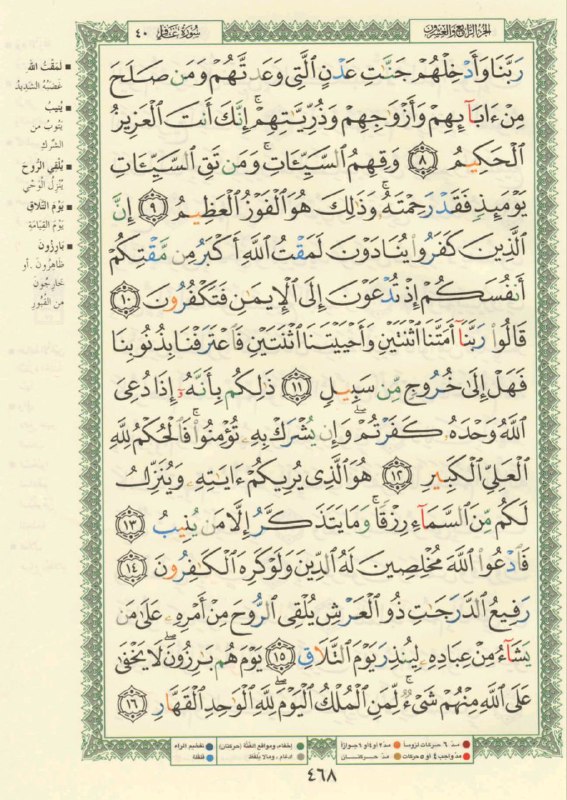 الجزء الرابع والعشرون
سورة غافر ٤٠
رَبَّنَا وَأَدْخِلْهُمْ جَنَّٰتِ عَدْنٍ ٱلَّتِى وَعَدتَّهُمْ وَمَن صَلَحَ
مِنْ ءَابَآئِهِمْ وَأَزْوَٰجِهِمْ وَذُرِّيَّٰتِهِمْ ۚ إِنَّكَ أَنتَ ٱلْعَزِيزُ
ٱلْحَكِيمُ ٨ وَقِهِمُ ٱلسَّيِّـَٔاتِ ۚ وَمَن تَقِ ٱلسَّيِّـَٔاتِ
يَوْمَئِذٍ فَقَدْ رَحِمْتَهُۥ ۚ وَذَٰلِكَ هُوَ ٱلْفَوْزُ ٱلْعَظِيمُ ٩ إِنَّ
ٱلَّذِينَ كَفَرُوا۟ يُنَادَوْنَ لَمَقْتُ ٱللَّهِ أَكْبَرُ مِن مَّقْتِكُمْ
أَنفُسَكُمْ إِذْ تُدْعَوْنَ إِلَى ٱلْإِيمَٰنِ فَتَكْفُرُونَ ١٠
قَالُوا۟ رَبَّنَآ أَمَتَّنَا ٱثْنَتَيْنِ وَأَحْيَيْتَنَا ٱثْنَتَيْنِ فَٱعْتَرَفْنَا بِذُنُوبِنَا
فَهَلْ إِلَىٰ خُرُوجٍ مِّن سَبِيلٍ ١١ ذَٰلِكُم بِأَنَّهُۥٓ إِذَا دُعِىَ
ٱللَّهُ وَحْدَهُۥ كَفَرْتُمْ ۖ وَإِن يُشْرَكْ بِهِۦ تُؤْمِنُوا۟ ۚ فَٱلْحُكْمُ لِلَّهِ
ٱلْعَلِىِّ ٱلْكَبِيرِ ١٢ هُوَ ٱلَّذِى يُرِيكُمْ ءَايَٰتِهِۦ وَيُنَزِّلُ
لَكُم مِّنَ ٱلسَّمَآءِ رِزْقًا ۚ وَمَا يَتَذَكَّرُ إِلَّا مَن يُنِيبُ ١٣
فَٱدْعُوا۟ ٱللَّهَ مُخْلِصِينَ لَهُ ٱلدِّينَ وَلَوْ كَرِهَ ٱلْكَٰفِرُونَ ١٤
رَفِيعُ ٱلدَّرَجَٰتِ ذُو ٱلْعَرْشِ يُلْقِى ٱلرُّوحَ مِنْ أَمْرِهِۦ عَلَىٰ مَن
يَشَآءُ مِنْ عِبَادِهِۦ لِيُنذِرَ يَوْمَ ٱلتَّلَاقِ ١٥ يَوْمَ هُم بَٰرِزُونَ ۖ لَا يَخْفَىٰ
عَلَى ٱللَّهِ مِنْهُمْ شَىْءٌ ۚ لِّمَنِ ٱلْمُلْكُ ٱلْيَوْمَ ۖ لِلَّهِ ٱلْوَٰحِدِ ٱلْقَهَّارِ ١٦
لَمَقْتُ الله
غَضَبُهُ الشَّدِيدُ
يُنِيبُ
يَتُوبُ من
الشِّرْكِ
يُلْقِي الرُّوحَ
يُنْزِلُ الْوَحْيَ
يَوْمَ التَّلَاقِ
يَوْمَ القِيَامَةِ
بَارِزُونَ
ظاهِرُونَ .أو
خارِجُون
من القُبُورِ
مدّ ٦ حركات لزوماً
مدّ ٢ أو ٤ أو ٦ جوازاً
إخفاء، ومواقع الغُنَّة (حركتان)
تفخيم الراء
مدّ واجب ٤ أو ٥ حركات
مدّ حركتان
إدغام، وما لا يُلفظ
قلقلة
٤٦٨